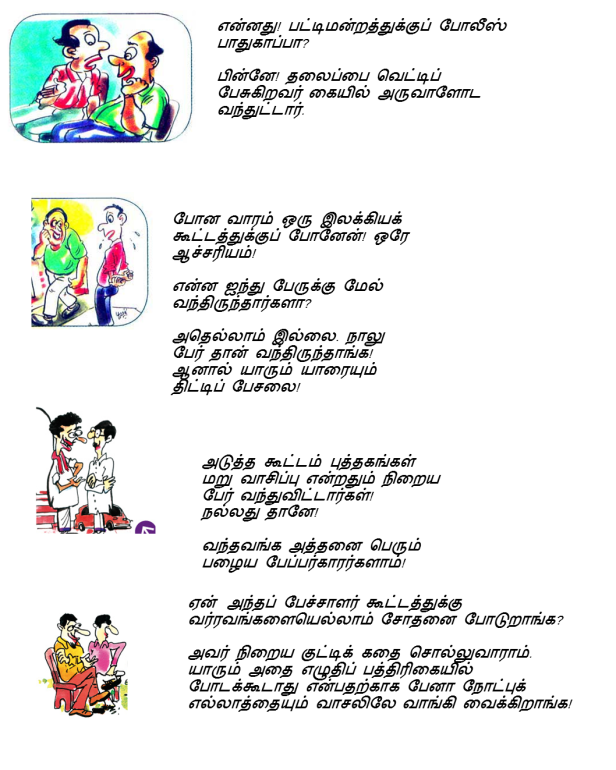 என்னது! பட்டிமன்றத்துக்குப் போலீஸ்
பாதுகாப்பா?
பின்னே! தலைப்பை வெட்டிப்
பேசுகிறவர் கையில் அருவாளோட
வந்துட்டார்.
போன வாரம் ஒரு இலக்கியக்
கூட்டத்துக்குப் போனேன்! ஒரே
ஆச்சரியம்!
என்ன ஐந்து பேருக்கு மேல்
வந்திருந்தார்களா?
அதெல்லாம் இல்லை. நாலு
பேர் தான் வந்திருந்தாங்க!
ஆனால் யாரும் யாரையும்
திட்டிப் பேசலை!
அடுத்த கூட்டம் புத்தகங்கள்
மறு வாசிப்பு என்றதும் நிறைய
பேர் வந்துவிட்டார்கள்!
நல்லது தானே!
வந்தவங்க அத்தனை பெரும்
பழைய பேப்பர்காரர்களாம்!
ஏன் அந்தப் பேச்சாளர் கூட்டத்துக்கு
வர்ரவங்களையெல்லாம் சோதனை போடுறாங்க?
அவர் நிறைய குட்டிக் கதை சொல்லுவாராம்.
யாரும் அதை எழுதிப் பத்திரிகையில்
போடக்கூடாது என்பதற்காக பேனா நோட்புக்
எல்லாத்தையும் வாசலிலே வாங்கி வைக்கிறாங்க!